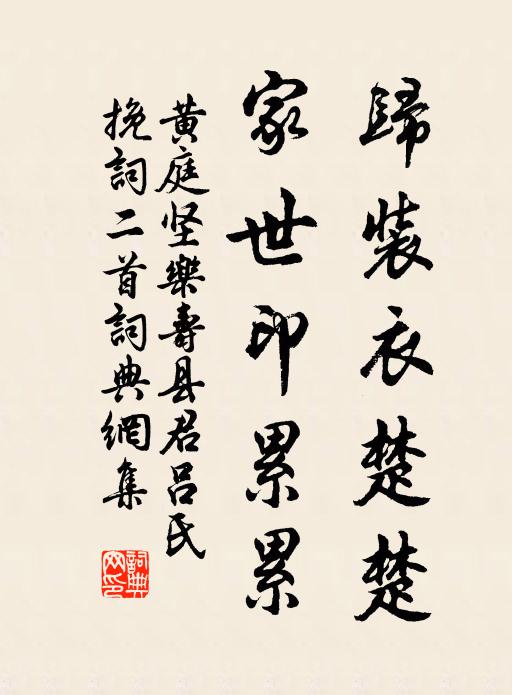 歸裝衣楚楚
家世印累累
黄庭坚樂壽县君吕氏
挽詞二首詞典網集
詞典网印